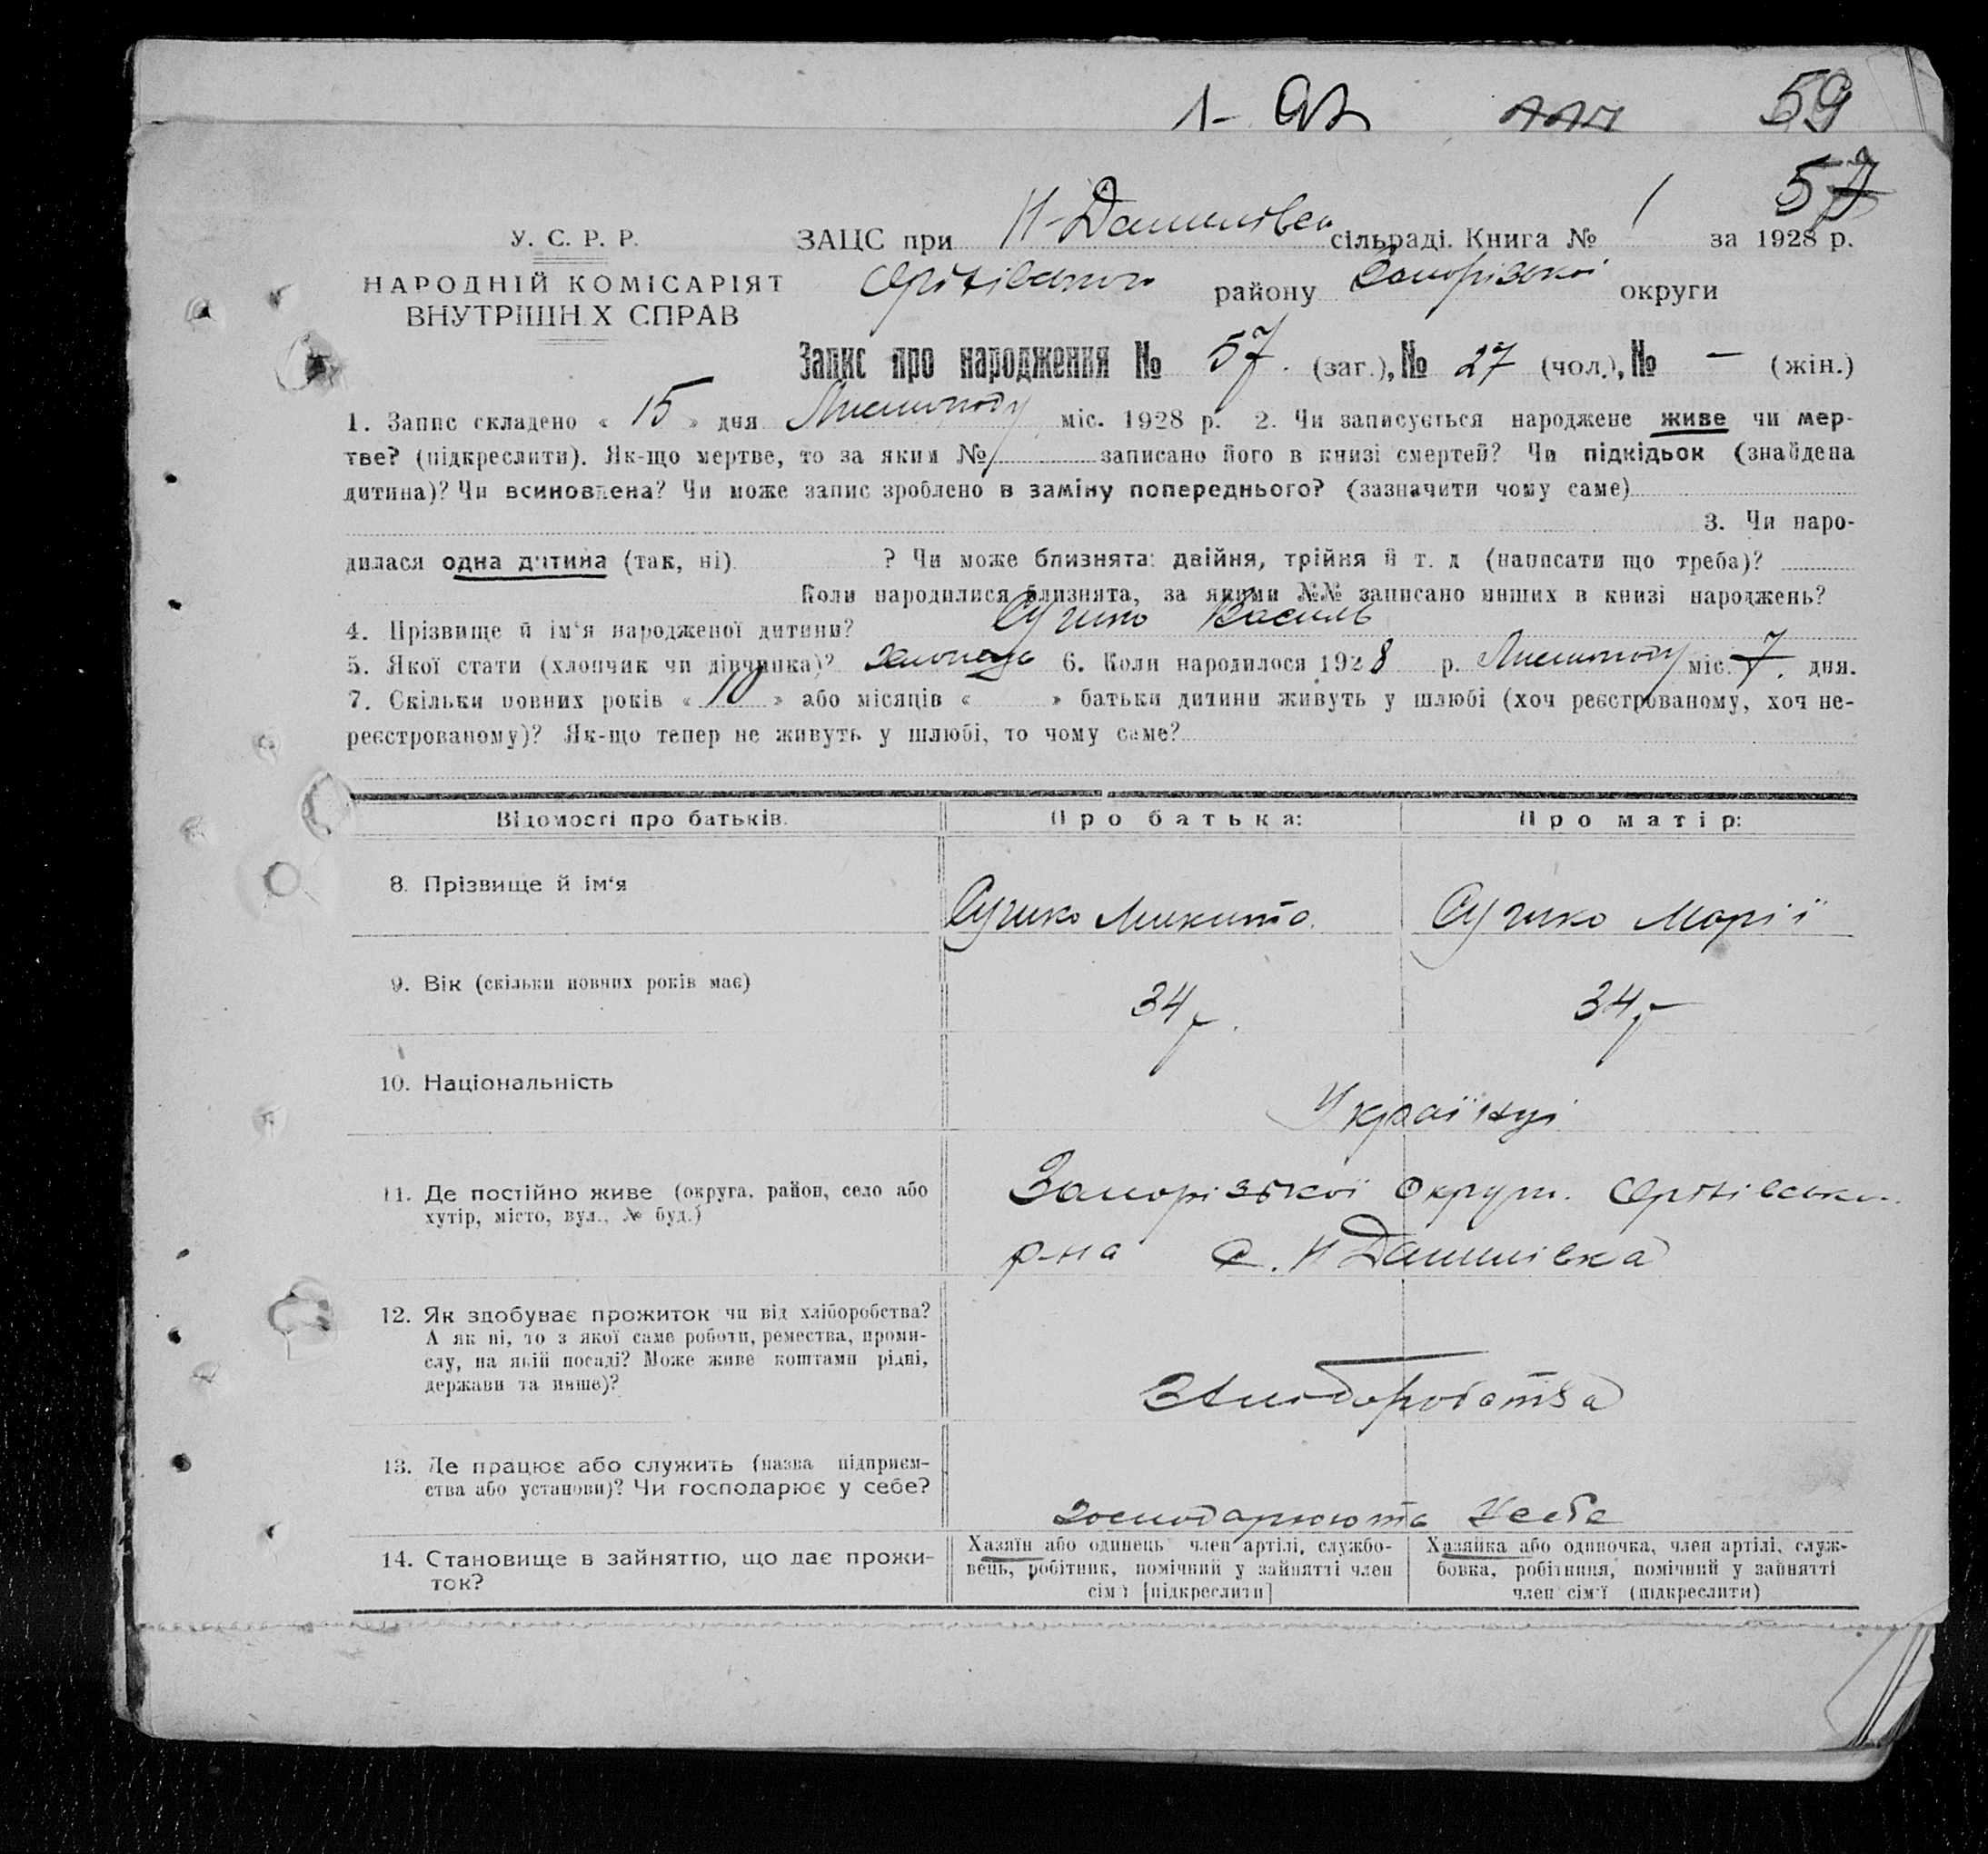 59
57
У. С. Р. Р.
НАРОДНІЙ КОМІСАРІЯТ
ВНУТРІШН Х СПРАВ
ЗАЦС при Н-Данилівск сільраді. Книга № 1 за 1928 р.
Оріхівського району Запорізької округи
Запис про народження № 57 (заг.), № 27 (чол.), № — (жін.)
1. Запис складено « 15 » дня Листопаду міс. 1928 р. 2. Чи записується народжене живе чи мер-
тве? (підкреслити). Як-що мертве, то за яким № записано його в книзі смертей? Чи підкідьок (знайдена
дитина)? Чи всиновлена? Чи може запис зроблено в заміну попереднього? (зазначити чому саме)
3. Чи наро-
дилася одна дитина (так, ні) ? Чи може близнята: двійня, трійня й т. д (написати що треба)?
Коли народилися близнята, за якими №№ записано инших в книзі народжень?
4. Прізвище й ім'я народженої дитини? Василь
5. Якої стати (хлопчик чи дівчинка)? 6. Коли народилося 1928 р. Листопаду міс. 7 дня.
7. Скільки повних років « 10 » або місяців « » батьки дитини живуть у шлюбі (хоч реєстрованому, хоч не-
реєстрованому)? Як-що тепер не живуть у шлюбі, то чому саме?
Відомості про батьків.
Про батька:
Про матір:
8. Прізвище й ім'я
Микита
Марія
9. Вік (скільки повних років має)
34 р.
34 р
10. Національність
Українці
11. Де постійно живе (округа, район, село або
хутір, місто, вул., № буд.)
Запорізької округи. Оріхівськ.
р-на с. Н Данилівка
12. Як здобуває прожиток чи від хліборобства?
А як ні, то з якої саме роботи, ремества, проми-
слу, на якій посаді? Може живе коштами рідні,
держави та инше)?
З хліборобства
13. Де працює або служить (назва підприєм-
ства або установи)? Чи господарює у себе?
Господарюють У себе
14. Становище в зайняттю, що дає прожи-
ток?
Хазяїн або одинець член артілі, службо-
вець, робітник, помічний у зайнятті член
сім'ї [підкреслити]
Хазяйка або одиночка, член артілі, служ-
бовка, робітниця, помічний у зайнятті
член сім'ї (підкреслити)